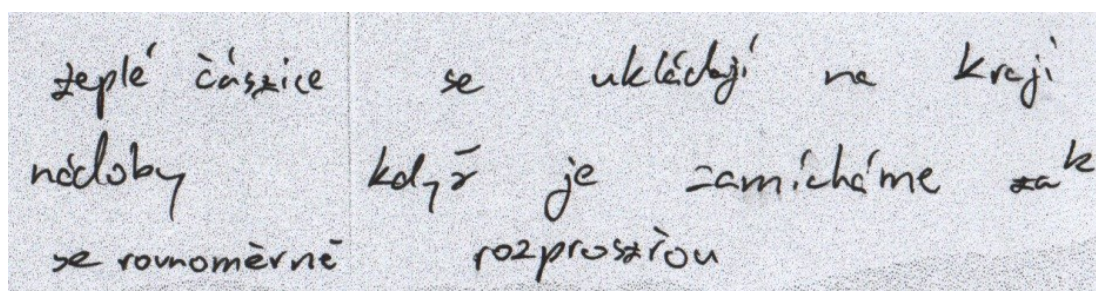 teplé částice se ukládají na kraji
nádoby když je zamícháme tak
se rovnoměrně rozprostřou